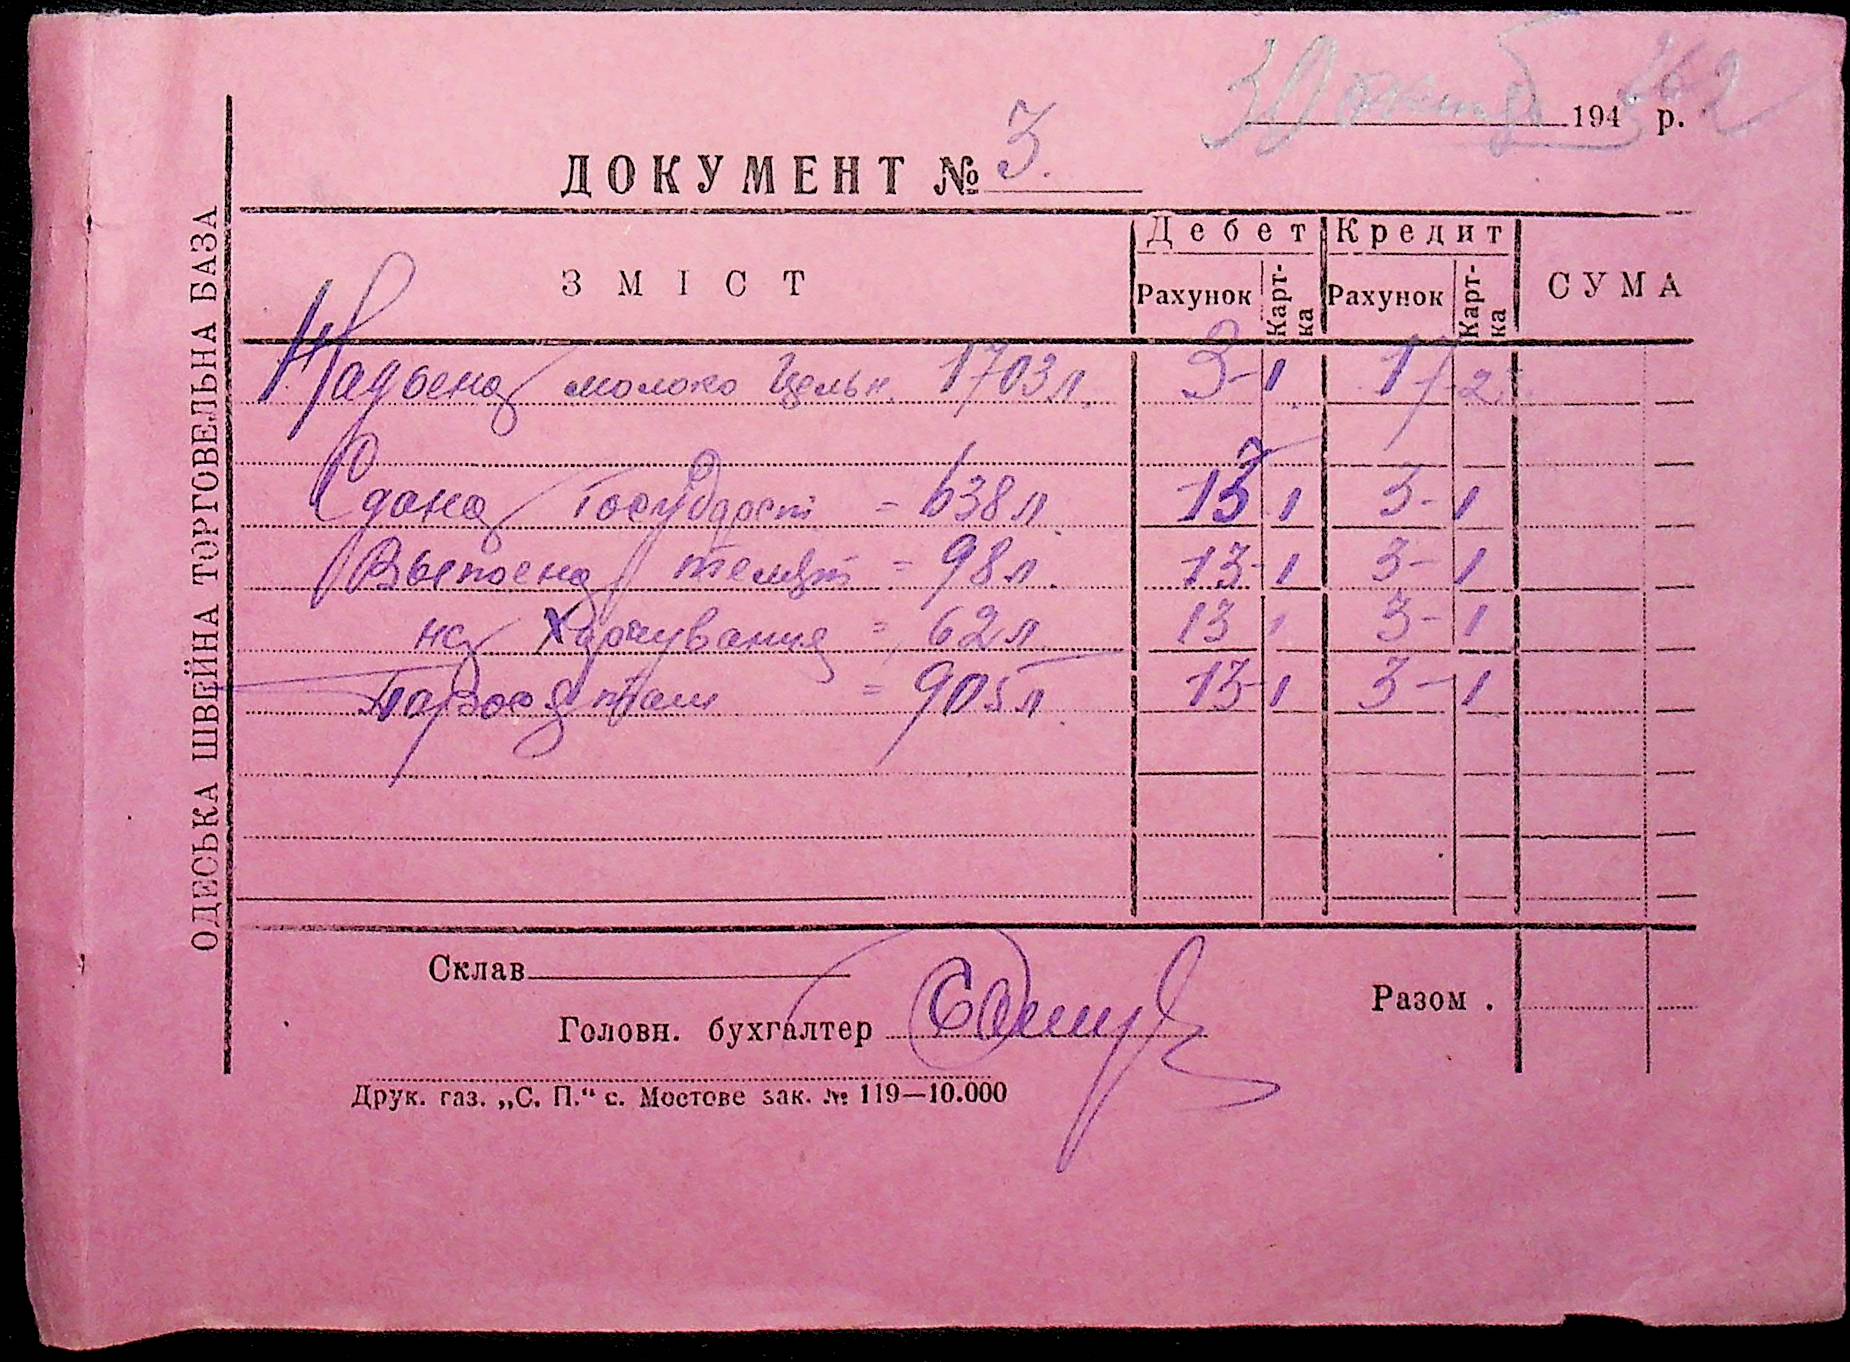 30 октяб 194 р.
ДОКУМЕНТ № 3.
ОДЕСЬКА ШВЕЙНА ТОРГОВЕЛЬНА БАЗА
ЗМІСТ Дебет Кредит СУМА
Рахунок Карт-ка Рахунок Карт-ка
Надоена молоко цельн. 1703 л. 3- 1 17- 2
Сдана Государст = 638 л 13 1 3- 1
Выпоена телят = 98 л. 13- 1 3- 1
на Харчування = 62 л. 13 1 3- 1
= 905 л 13- 1 3- 1
Склав
Головн. бухгалтер
Разом .
Друк. газ. „С. П.“ с. Мостове зак. № 119—10.000